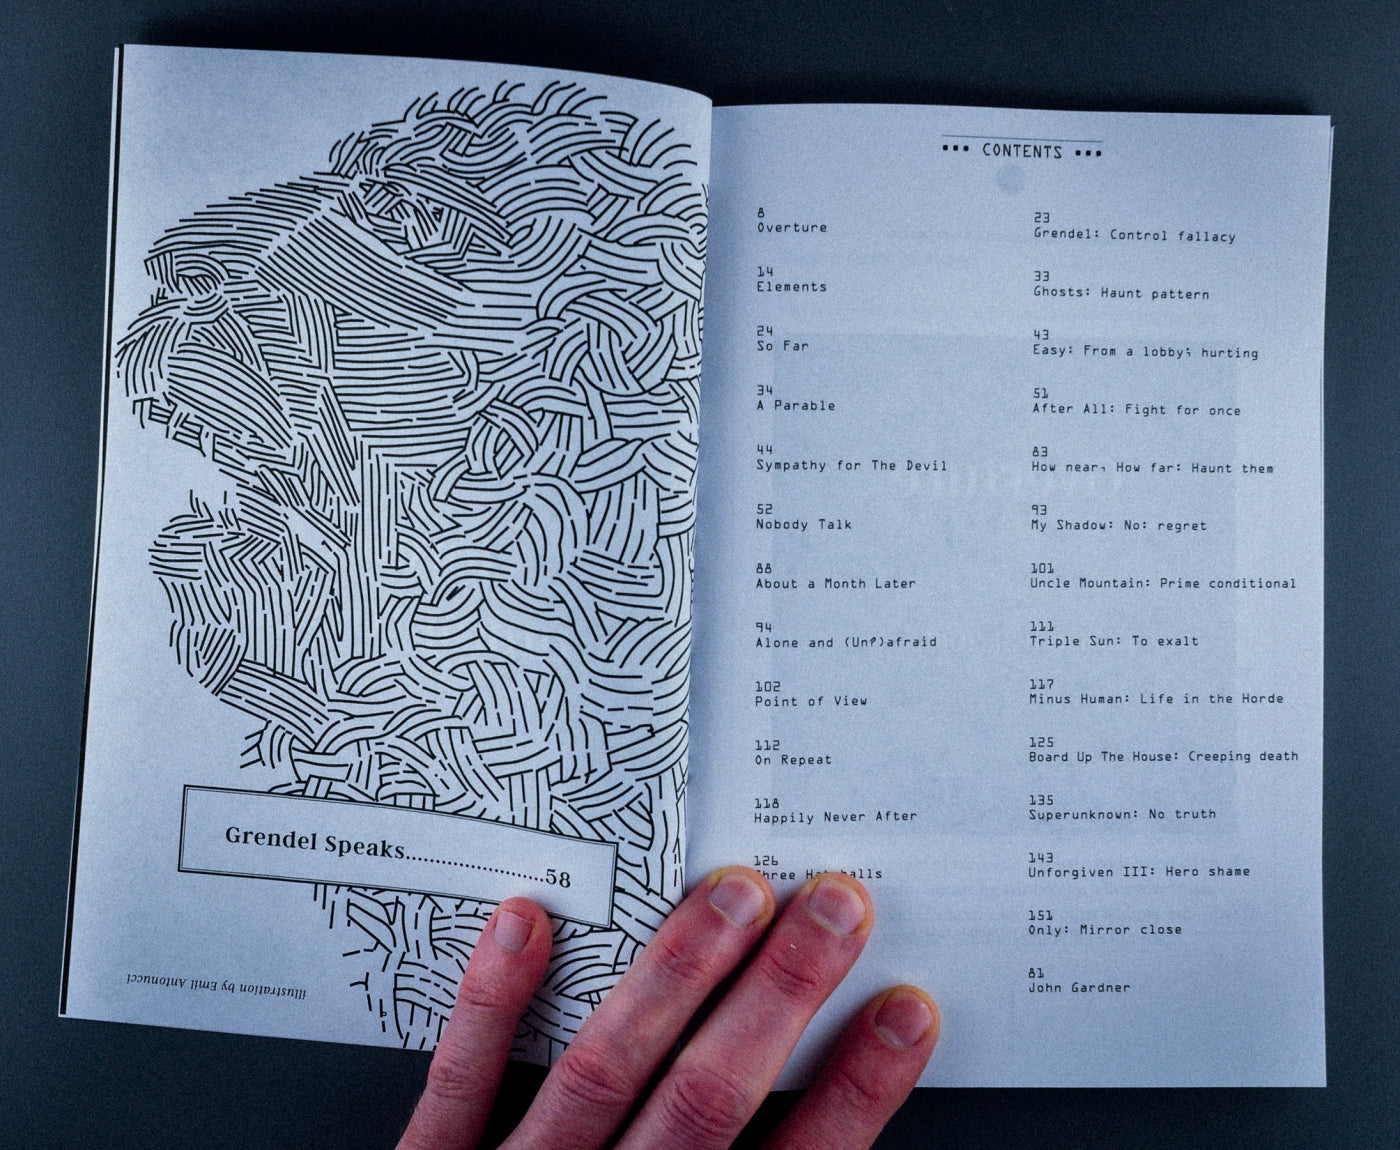 Grendel Speaks........................58
illustration by Emil Antonucci
••• CONTENTS •••
8
Overture
14
Elements
24
So Far
34
A Parable
44
Sympathy for The Devil
52
Nobody Talk
88
About a Month Later
94
Alone and (Un?)afraid
102
Point of View
112
On Repeat
118
Happily Never After
126
23
Grendel: Control fallacy
33
Ghosts: Haunt pattern
43
Easy: From a lobby; hurting
51
After All: Fight for once
83
How near, How far: Haunt them
93
My Shadow: No: regret
101
Uncle Mountain: Prime conditional
111
Triple Sun: To exalt
117
Minus Human: Life in the Horde
125
Board Up The House: Creeping death
135
Superunknown: No truth
143
Unforgiven III: Hero shame
151
Only: Mirror close
81
John Gardner